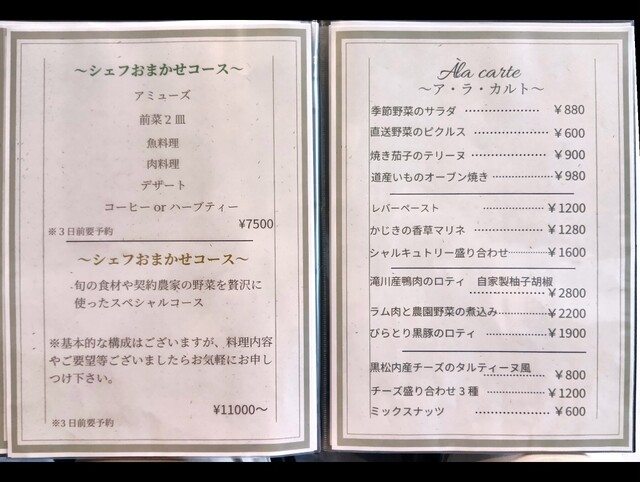 ～シェフおまかせコース～
アミューズ
前菜２皿
魚料理
肉料理
デザート
コーヒー or ハーブティー
¥7500
※３日前要予約
～シェフおまかせコース～
旬の食材や契約農家の野菜を贅沢に
使ったスペシャルコース
※基本的な構成はございますが、料理内容
やご要望等ございましたらお気軽にお申し
つけ下さい。
¥11000～
※3 日前要予約
Àla carte
～ア・ラ・カルト～
季節野菜のサラダ ................ ￥880
直送野菜のピクルス ................ ￥600
焼き茄子のテリーヌ ................ ￥900
道産いものオーブン焼き ................ ￥980
レバーペースト ................ ￥1200
かじきの香草マリネ ................ ￥1280
シャルキュトリー盛り合わせ ................ ￥1600
滝川産鴨肉のロティ　自家製柚子胡椒
................ ￥2800
ラム肉と農園野菜の煮込み ................ ￥2200
びらとり黒豚のロティ ................ ￥1900
黒松内産チーズのタルティーヌ風
................ ￥800
チーズ盛り合わせ 3 種 ................ ￥1200
ミックスナッツ ................ ￥600